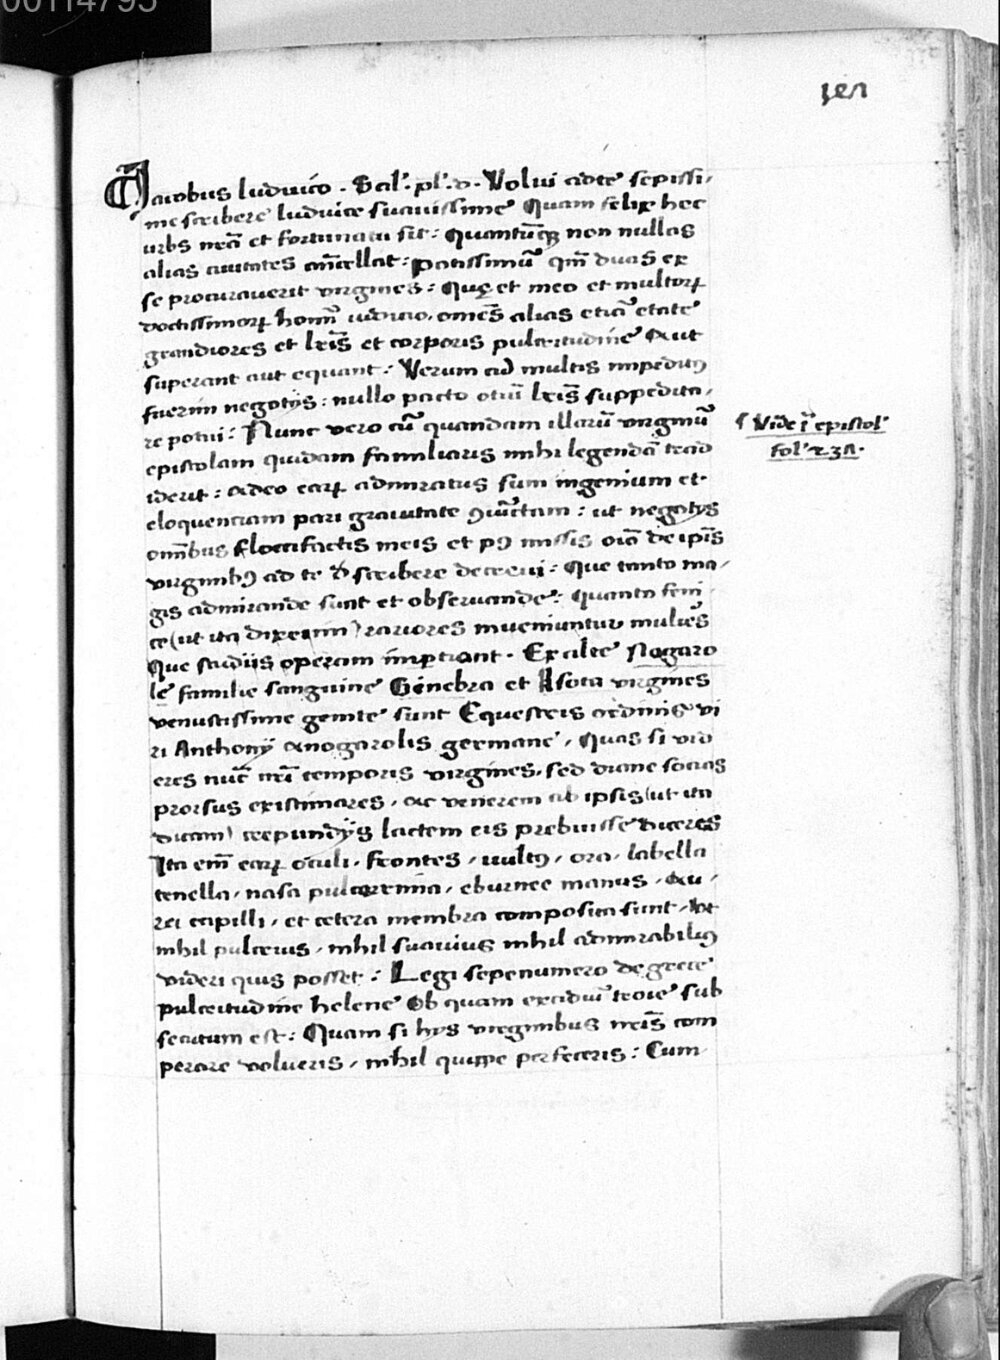 00114795
Jacobus ludvico . Sal'. pl'. d. Volui ad te sepissi,
me scribere ludvice suavissime Quam felix hec
urbs nrā et fortunata sit: Quantūcꝙ non nullas
alias civitates ancellat: potissimū qm̄ duas ex
se procuraverit virgines: Quę et meo et multoꝝ
doctissimoꝝ homīn iuditio, omēs alias etiā etate
grandiores et lrīs et corporis pulcritudine aut
superant aut equant: Verum cū multis impeditꝰ
fuerim negotijs: nullo pacto otiū lrīs suppedita,
re potui: Nunc vero cū quandam illarū virginū
epistolam quidam familiaris mihi legendā trad
iderit: adeo eaꝝ admiratus sum ingenium et
eloquentiam pari gravitate ꝯiūctam: ut negotijs
omībus floccifactis meis et pꝰ missis oiā de ipīs
virginibꝰ ad te scribere decrevi: Que tanto ma,
gis admirande sunt et observande: quanto feni
ce (ut ita dixerim) rariores inveniuntur mulieēs
Que studiis operam impṫiant. Ex alte Nogaro
le familie sanguine Ginebra et Isota virgines
venustissime genite sunt Equestris ordinis vi
ri Anthonij anogarolis germane, Quas si vid
eres nūc nrī temporis virgines, sed diane socias
prorsus existimares, ac venerem ab ipsis (ut ita
dicam) crepundijs lactem eis prebuisse diceres
Ita em̄ eaꝝ oculi, frontes, vultꝰ, ora, labella
tenella, nasa pulcerrima, eburnee manus, au,
rei capilli, et cetera membra composita sunt, ut
nihil pulcrius, nihil suavius nihil admirabiliꝰ
videri quis posset: Legi sepenumero de grece
pulcritudine helene Ob quam excidiū troie sub
secutum est: Quam si hijs virginibus nrīs com
parare volueris, nihil quippe perfeceris: Cum
Vide ī epistol'
fol' 231.